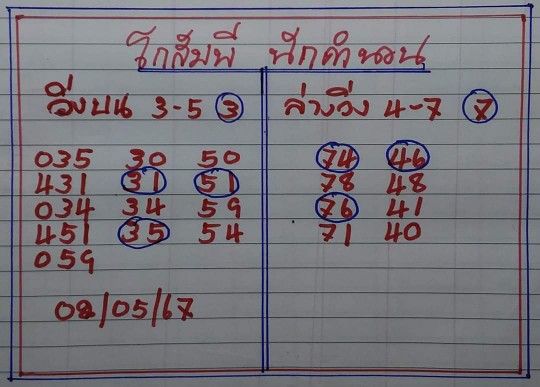 โกสัมพี นักคำนวน
วิ่งบน 3-5 3
035 30 50
431 31 51
034 34 59
451 35 54
059
08/05/67
ล่างวิ่ง 4-7 7
74 46
78 48
76 41
71 40